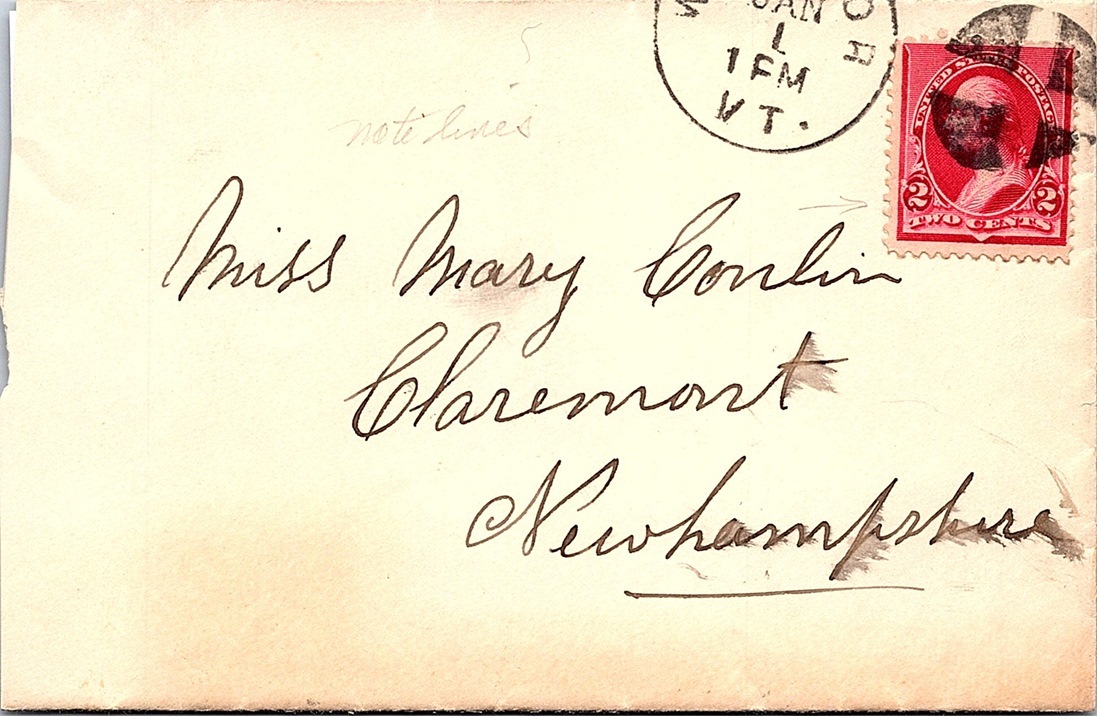 JAN
1
1 PM
VT.
UNITED STATES POSTAGE
2 2
TWO CENTS
note lines
Miss Mary Conlin
Claremont
Newhampshire